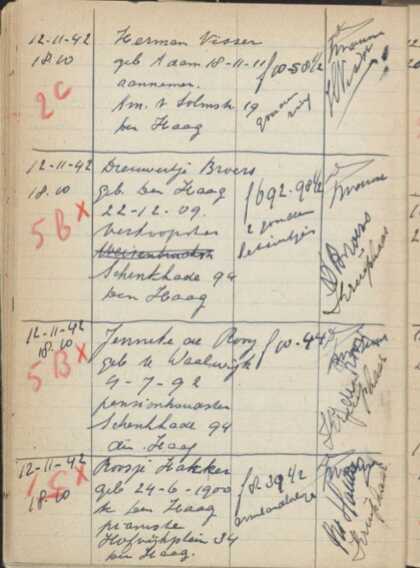 12-11-42
18.00
2C
Herman Visser
geb A'dam 18-11-11
aannemer.
Am. v Solmstr 19
Den Haag
f 00-50 1/2
gouden
ring
12-11-42
18.00
5B x
Dieuwertje Broers
geb Den Haag
22-12-09.
verkoopster
Schenkkade 94
Den Haag
f 692-98 1/2
2 gouden
Broers
12-11-42
18.00
5B x
Jenneke de Rooy
geb te Waalwijk
4-7-92
pensionhoudster
Schenkkade 94
den Haag
f 00-44
12-11-42
18.00
Roosje Hakker
geb 24-6-1900
te Den Haag
pianiste
Hofwijkplein 34
Den Haag.
f 8.39 1/2
armbandhorloge